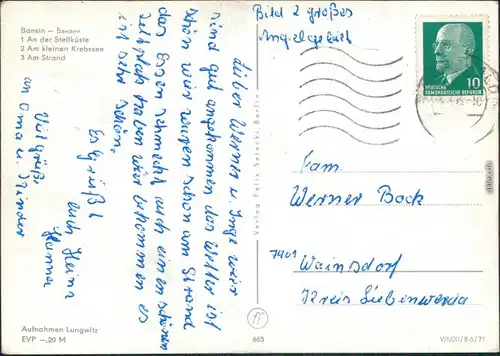 Bansin — Бансин
1 An der Steilküste
2 Am kleinen Krebssee
3 Am Strand
Bild 2 großes
Angelgebuch
10
DEUTSCHE
DEMOKRATISCHE REPUBLIK
Lieber Werner u. Inge wir
sind gut angekommen das Wetter ist
schön wir waren schon am Strand
das Essen schmeckt auch einen schönen
zeltplatz haben wir bekommen es
ist sehr schön.
Es grüßt
euch Heinz
Hanna
Viel Grüße
an Oma u. Kinder
Verlag Felix Setecki, Berlin
Fam.
Werner Bock
7901
Wainsdorf
Kreis Liebenwerda
Aufnahmen Lungwitz
EVP –,20 M
665
V/11/20/B 6/71